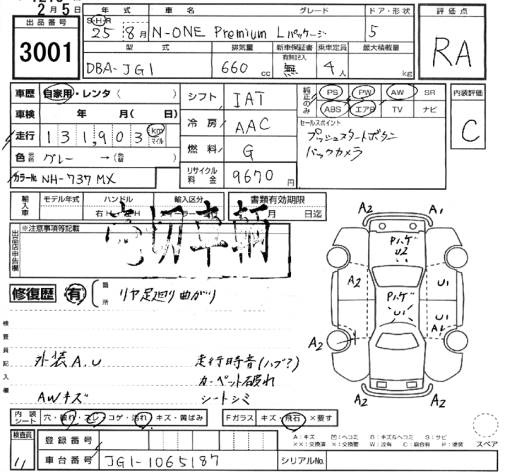 2月5日
出品番号 3001
年式 SH 25 8月 車名 N-ONE Premium Lパッケージ グレード ドア・形状 5 評価点 RA
型式 DBA-JG1 排気量 660cc 新車保証書 有無記入 無 乗車定員 4人 最大積載量 kg
車歴 自家用・レンタ( )
車検 年 月( 日)
走行 131,903 km マイル
色 グレー→
カラーNo NH-737MX
シフト IAT
冷房 AAC
燃料 G
リサイクル料金 9670円
純正のみ PS PW AW SR
ABS エアB TV ナビ
セールスポイント
プッシュスタートボタン
バックカメラ
内装評価 C
輸入車 モデル年式 ハンドル 右H 左H 輸入区分 書類有効期限 月 日迄
出品店申告欄 ※注意事項等記載
車輌
修復歴 有 箇所 リヤ足廻り曲がり
検査員記入欄
外装A.U 走行時音(ハブ?)
カーペット破れ
AWキズ シートシミ
A2 A1
Pハゲ
U2
A2 U1
Pハゲ
U1 U1
A2
A2 A2
内装シート 穴・破れ・スレ・コゲ・汚れ・キズ・黄ばみ Fガラス キズ・飛石×要す
A:キズ U:ヘコミ B:キズ&ヘコミ S:サビ
XX:交換済 X:要交換 W:波有 C:腐食 P:塗装
スペア
検査員 11 登録番号
車台番号 JG1-1065187 シリアルNo.